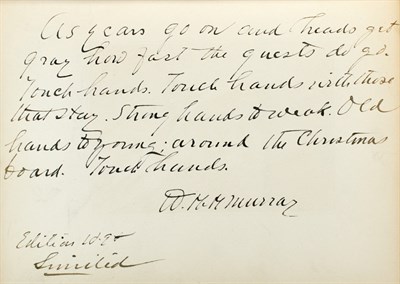 As years go on and heads get
gray how fast the guests do go.
Touch hands. Touch hands with those
that stay. Strong hands to weak. Old
hands to young; around the Christmas
board. Touch hands.
W. H. H. Murray
Edition
Limited